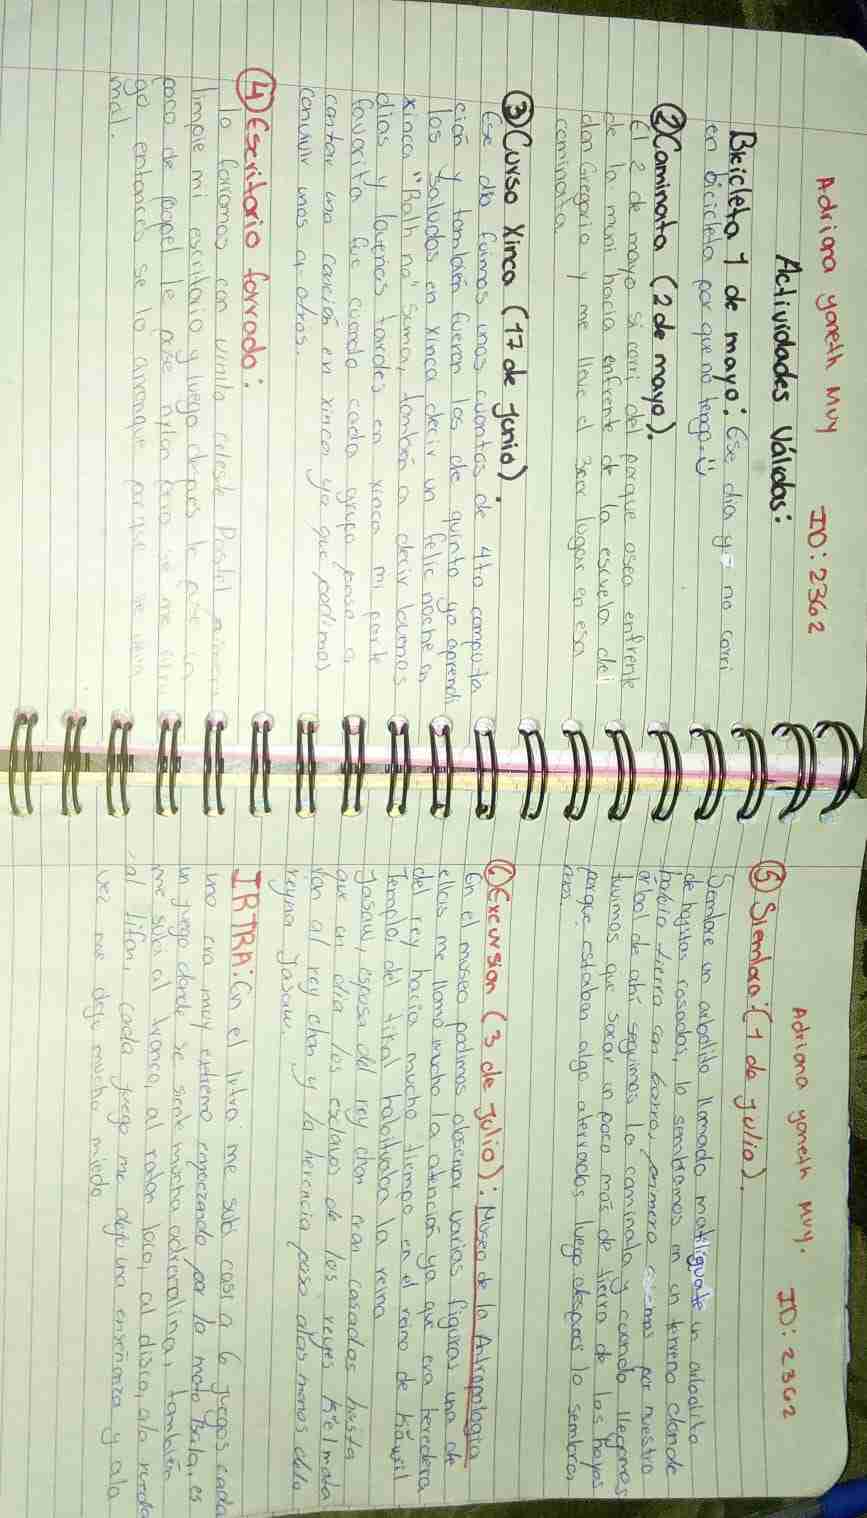 Adriana yoneth Muy ID: 2362
Actividades Válidas:
Bicicleta 1 de mayo: Ese dia yo no corri
en bicicleta por que no tengo.
② Caminata (2 de mayo).
El 2 de mayo si corri del parque osea enfrente
de la muni hacia enfrente de la escuela del
don Gregorio y me lleve el 3cer lugar en esa
caminata.
③ Curso Xinca (17 de Junio).
Ese dia fuimos unos cuantos de 4to computa
ción y también fueron los de quinto yo aprendi
los saludos en xinca decir un feliz noche en
xinca "Ralh na" suma, también a decir buenos
dias y buenas tardes en xinca mi parte
favorita fue cuando cada grupo paso a
cantar una canción en xinca ya que podimos
convivir unos a otros.
④ Escritorio forrado:
lo forramos con vinilo celeste Pastel
limpie mi escritorio y luego despues le puse la
poco de papel le puse nylon pero se me
go entonces se lo arranque porque se veia
mal.
Adriana yoneth Muy. ID: 2362
⑤ Siembra: (1 de julio).
Sembre un arbolito llamado matiliguate un arbolito
de hojitas rosadas, lo sembramos en un terreno donde
habia tierra con barro, primero por nuestro
árbol de ahí seguimos la caminata y cuando llegamos
tuvimos que sacar un poco más de tierra de los hoyos
porque estaban algo aterrados luego despues lo sembra
mos.
⑥ Excursion (3 de Julio): Museo de la Antropologia
En el museo podimos observar varias figuras una de
ellas me llamo mucho la atención ya que era heredera
del rey hacia mucho tiempo en el reino de Kawiil
Templo del tikal habituaba la reina
Yasaw, esposa del rey chan eran casados hasta
que un dia los esclavos de los reyes
ron al rey chan y la herencia paso alas manos dela
reyna Yasaw.
IRTRA: En el Irtra me subi casi a 6 juegos cada
uno era muy extremo empezando por la moto Bala, es
un juego donde se siente mucha adrenalina, también
me subi al bronco, al raton loco, al disco, ala rueda
al tifon, cada juego me dejo una enseñanza y ala
vez me dejo mucho miedo